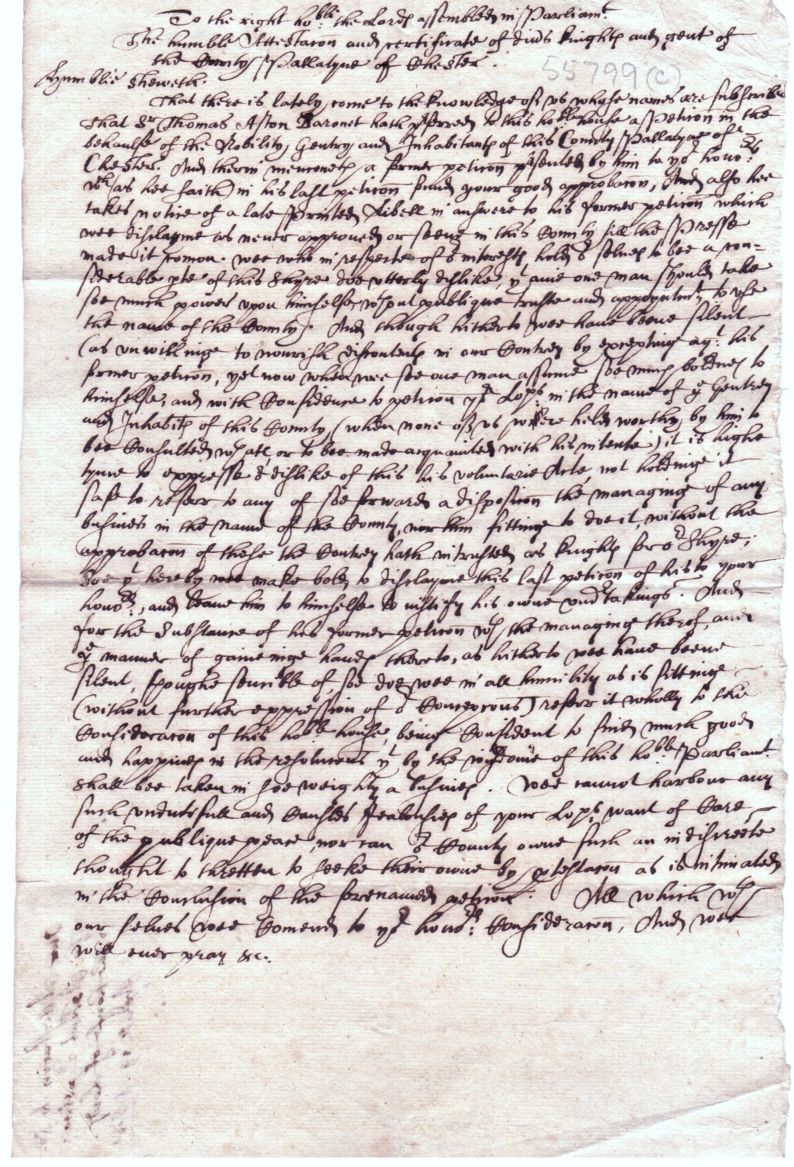 To the right ho:ble the Lords assembled in Parliamt
The humble Attestacon and certificate of divs knights and gent of
the County Pallatyne of Chester.
55799(c)
Humblie Sheweth.
That there is lately come to the knowledge of us whose names are subscribed
that Sr Thomas Aston Baronet hath pferred to this hoble house a Peticon in the
behaulfe of the Nobility, Gentry and Inhabitants of this County Pallatyne of
Chester. And therin menconeth a former peticon psented by him to yor honors
wch (as hee saith) in his last peticon found your good approbacon, And also hee
takes notice of a late Printed Libell in answere to his former peticon which
wee disclayme as never approved or seene in this County till the Presse
made it comon. wee who in respecte of or interests hold or selves to bee a con-
siderable pte of this Shyre doe utterly dislike, yt anie one man should take
soe much power upon himselfe wthout publique truste and appoyntmt to use
the name of the County. And though hitherto wee have beene silent
(as unwillinge to nourish discontents in our Contrey by exceptinge agt his
former peticon, yet now when wee see one man assume soe much boldnes to
himselfe, and with Confidence to peticon yor Lops in the name of ye Gentrey
and Inhabits of this County (when none of us were held worthy by him to
bee Consulted wth all or to bee made acquainted with his intents) it is highe
tyme to expresse or dislike of this his voluntarie Acte not holdinge it
safe to referr to any of soe forward a disposicon the managinge of any
busines in the name of the County, nor him fittinge to doe it, without the
approbacon of those the Contrey hath intrusted as knights for or Shyre;
Soe yt hereby wee make bold to disclayme this last peticon of his to your
honors, and leave him to himselfe to iustify his owne undtakings. And
for the Substance of his former peticon wth the managing therof, and
ye manner of gaineinge hands thereto, as hitherto wee have beene
silent, thoughe sensible of, soe doe wee in all humility as is fittinge
(without further expression of or Concepcons) referr it wholly to the
Consideracon of this hoble house, being Confident to find much good
and happines in the resolucons yt by the wisdome of this hoble Parliamt
shall bee taken in soe weighty a busines. Wee cannot harbour any
such undutifull and Causles Jealousies of your Lops want of Care
of the publique peace, nor can or County owne such an indiscreete
thought to thretten to seeke their owne by ptestacon as is intimated
in the Conclusion of the forenamed peticon. All which wth
our selves wee Comend to yor honors Consideracon, And wee
will ever pray &c.